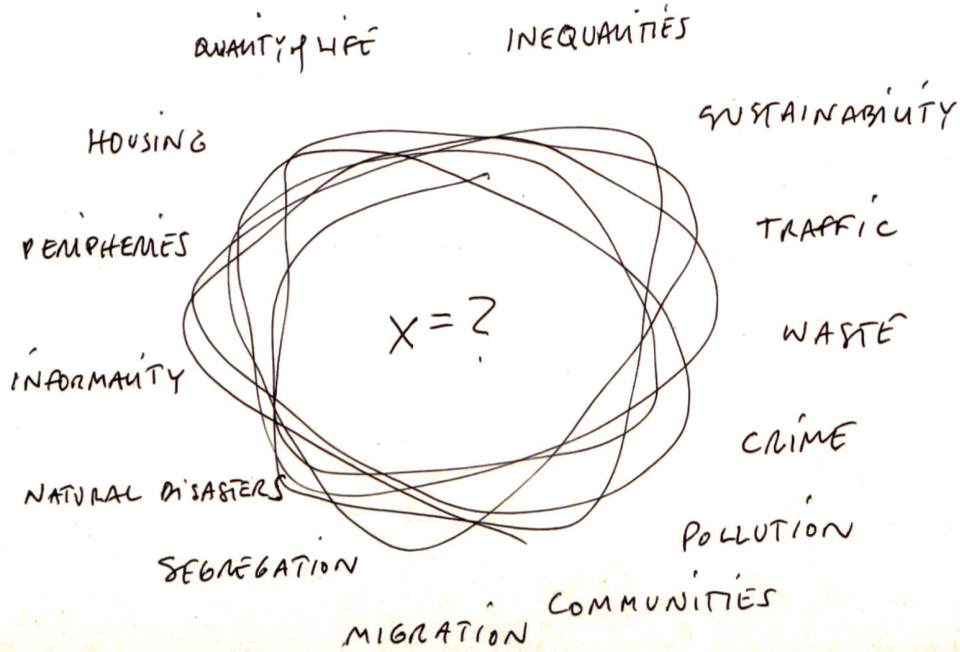 QUALITY of LIFE
INEQUALITIES
HOUSING
SUSTAINABILITY
PERIPHERIES
TRAFFIC
X = ?
WASTE
INFORMALITY
CRIME
NATURAL DISASTERS
POLLUTION
SEGREGATION
COMMUNITIES
MIGRATION